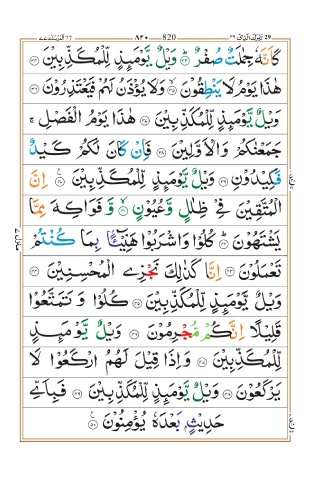 المرسلت ٧٧ ٨٢٠ 820 تبرك الذي ٢٩ 29
كَاَنَّهٗ جِمٰلَتٌ صُفْرٌ ؕ﴿۳۳﴾ وَيْلٌ يَّوْمَئِذٍ لِّلْمُكَذِّبِيْنَ ﴿۳۴﴾
هٰذَا يَوْمُ لَا يَنْطِقُوْنَ ۙ﴿۳۵﴾ وَلَا يُؤْذَنُ لَهُمْ فَيَعْتَذِرُوْنَ ﴿۳۶﴾
وَيْلٌ يَّوْمَئِذٍ لِّلْمُكَذِّبِيْنَ ﴿۳۷﴾ هٰذَا يَوْمُ الْفَصْلِ ۚ
جَمَعْنٰكُمْ وَالْاَوَّلِيْنَ ﴿۳۸﴾ فَاِنْ كَانَ لَكُمْ كَيْدٌ
فَكِيْدُوْنِ ﴿۳۹﴾ وَيْلٌ يَّوْمَئِذٍ لِّلْمُكَذِّبِيْنَ ﴿۴۰﴾ اِنَّ
الْمُتَّقِيْنَ فِيْ ظِلٰلٍ وَّعُيُوْنٍ ۙ﴿۴۱﴾ وَّ فَوَاكِهَ مِمَّا
يَشْتَهُوْنَ ؕ﴿۴۲﴾ كُلُوْا وَاشْرَبُوْا هَنِيْٓـًٔا ۢ بِمَا كُنْتُمْ
تَعْمَلُوْنَ ﴿۴۳﴾ اِنَّا كَذٰلِكَ نَجْزِي الْمُحْسِنِيْنَ ﴿۴۴﴾
وَيْلٌ يَّوْمَئِذٍ لِّلْمُكَذِّبِيْنَ ﴿۴۵﴾ كُلُوْا وَ تَمَتَّعُوْا
قَلِيْلًا اِنَّكُمْ مُّجْرِمُوْنَ ﴿۴۶﴾ وَيْلٌ يَّوْمَئِذٍ
لِّلْمُكَذِّبِيْنَ ﴿۴۷﴾ وَاِذَا قِيْلَ لَهُمُ ارْكَعُوْا لَا
يَرْكَعُوْنَ ﴿۴۸﴾ وَيْلٌ يَّوْمَئِذٍ لِّلْمُكَذِّبِيْنَ ﴿۴۹﴾ فَبِاَيِّ
حَدِيْثٍ ۢ بَعْدَهٗ يُؤْمِنُوْنَ ﴿۵۰﴾